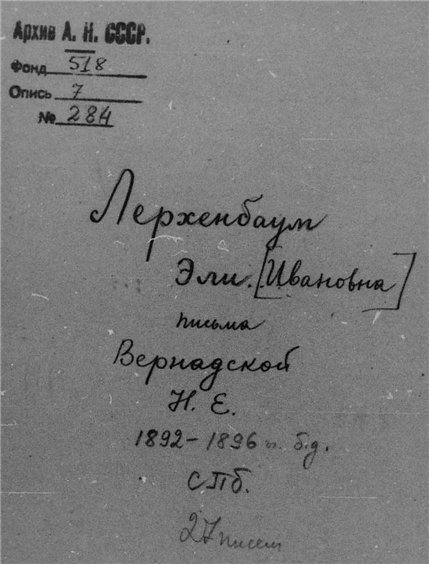 Архив А. Н. СССР.
Фонд 518
Опись 7
№ 284
Лерхенбаум
Эли. [Ивановна]
письма
Вернадской
Н. Е.
1892-1896 и б.д.
СПб.
27 писем